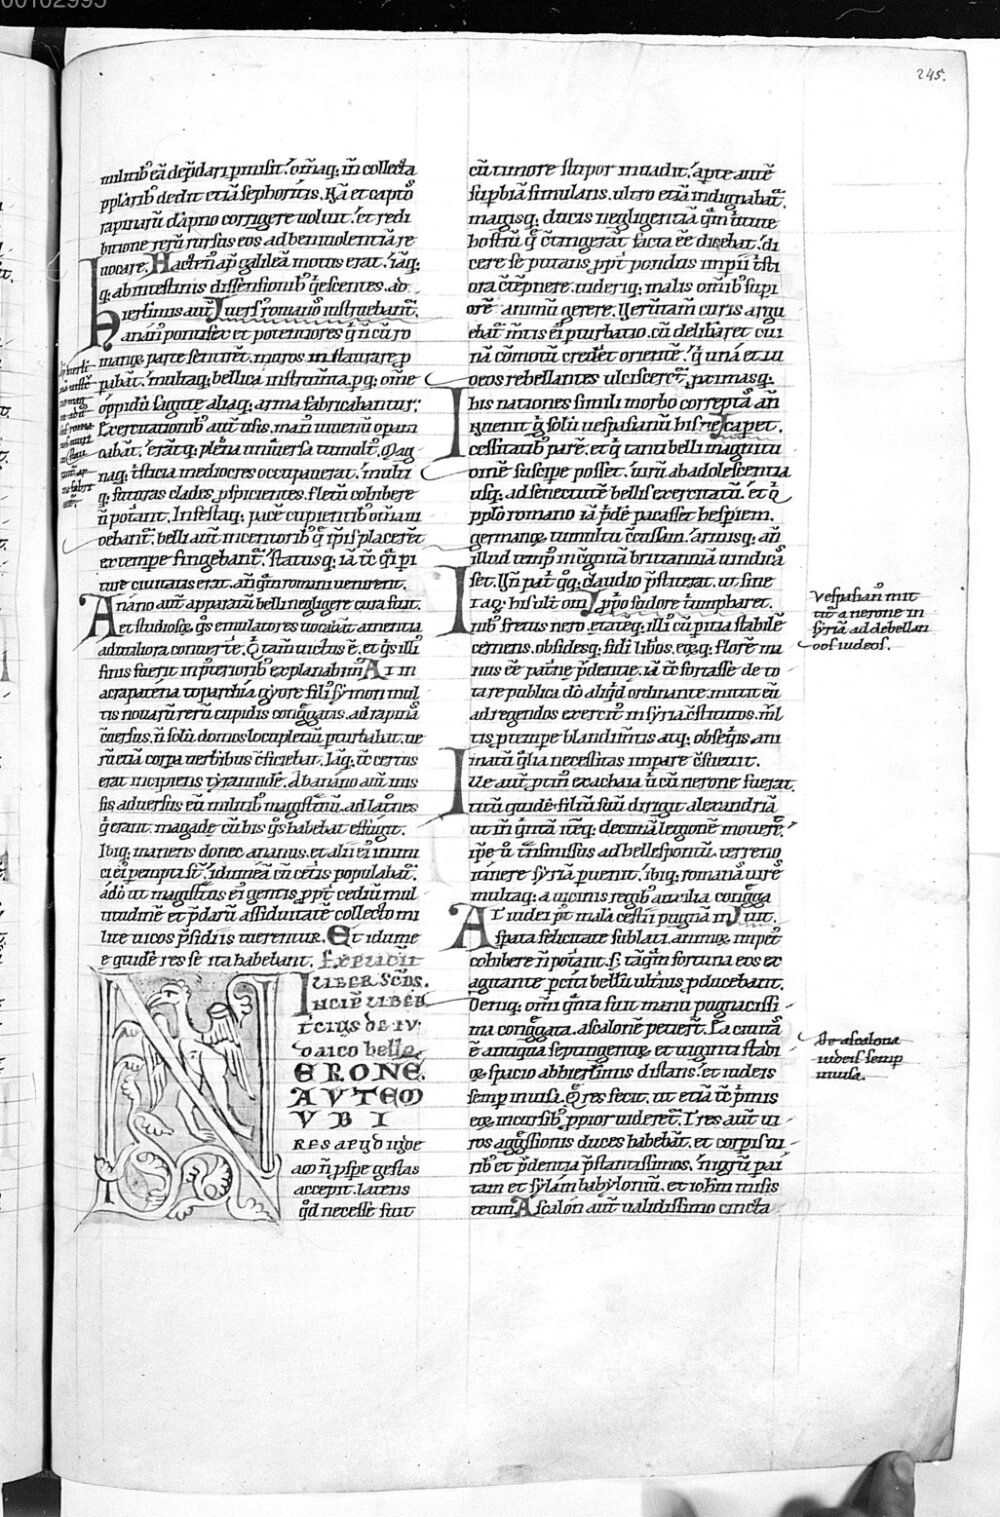 00102995
245.
militib' eā dep̄dari p̄misit. om̄aq; in collecta
pplārib' dedit etiā sephoritis. Nā et captos
rapinarū dāpno corrigere voluit. et redi
bitione rerū rursus eos ad benivolentiā re
vocare. Hacten' ap' galileā motus erat. Iāq;
q; ab intestinis dissensionib' q'escentes. ad
iersimis aut' Ivers' romanos instruebant'.
anan' pontifex et potentiores q' n̄ cū ro
manę parte sentiret. muros instaurare p
pabāt. multaq; bellica instrum̄ta. p q; om̄e
oppidū sagitte aliaq; arma fabricabantur;
Exercitationib' aut' usis. man' iuvenū opam
dabāt. erātq; plena universa tumult'. Mag
naq; tristicia mediocres occupaverat. multi
q; futuras clades p̄spicientes. fletū cohibere
n̄ poterant. Infestaq; pacē cupientib' om̄ia vi
debant'. belli aut' incentorib' q' ip̄is placer̄et
ex tempe fingebant'. Statusq; iā t̄c q'i pi
ture civitatis erat. an q'm romani venirent.
Anano aut' apparatū belli negligere cura fuit.
et studiosę q's emulatores vocabāt amentia
ad utiliora convertē. Qtam' victus ē. et q's illi
finis fuerit in p̄terioribus explanabim'. At in
acrapatena toparchia gyore fili' symon mul
tis novarū rerū cupidis cong̊gatis. ad rapinā
c̄versus. n̄ solū domos locupletiū p̄turbabat. ve
rū etiā corpa verberibus c̄ficiebat. Iāq; t̄c certus
erat incipiens tyrannidē. Ab anano aut' mis
sis adversus eū militib' magist̄tuū. ad latrones
q' erant. magadę cū his q's habebat effugit.
Ibiq; manens donec ananus. et alii ei' inimi
ci ei' perempti s̄t. idumeā cū cet̄is populabat'.
ādo ut magist̄tus ei' gentis. ppt' cediū mul
titudinē et p̄darū assiduitatē collecto mi
lite vicos p̄sidiis tuerentur. Et idume
ę quidē res sē ita habebant. Explicit
LIBER SCD̄S.
INCIP̄ LIBER
TCIUS DE IV
DAICO BELLO
NERONE.
AUTEM
UBI
RES APUD IUDE
am n̄ p̄spe gestas
accepit. latens
q'd necesse fuit
cū timore stupor invadit. aptē autē
supbiā simulans. ultro etiā indignabat'.
magisq; ducis negligentiā q'm virtute
hostiū q' c̄tingerāt facta ēē dicebat. di
cere se putans ppt' pondus impii t'sti
ora c̄tēpnere. viderq; malis om̄ib' supi
orē animū gerere. Verūtam̄ curis argu
ebat' m̄tis ei' pturbatio. cū delib̄aret cui
nā c̄motū credēt orientē. q' unā et iu
deos rebellantes ulcisceret'. primasq;
his nationes simili morbo correpta an
Invenit q' solū vespasianū his rēs capet.
cessitatib' parē. et q' tanti belli magnitu
dinē suscipe posset. virū ab adolescentia
usq; ad senectutē bellis exercitatū. et q'
pplo romano iā p'dē pacasset hespiem.
germanoę tumultu c̄cussam. armisq; an
illud temp' incognitā britanniā vindica
set. Un̄ pat'i q'q; claudio p̄stiterat. ut sine
pprio sudore triumpharet.
nib' fretus nero. etatēq; illi' cū pitia stabilē
cernens. obsidesq; fidei lib̄os. eoęq; florē ma
nus eē pat'nę p̄dentię. iā t̄c fortasse de to
ta re publica d̄o aliq'd ordinante. mittit eū
ad regendos exercit' in syria c̄stitutos. m̄l
tis p̄ tempe blandim̄tis atq; obseq'is ani
matū q'lia necessitas impare c̄suevit.
Ille aut' p̄tin' ex achaia ū cū nerone fuerat.
titū quidē filiū suū dirigit alexandriā
ut in q'ntā iteq; decimā legionē moverē.
ip̄e ū t̄nsmissus ad hellespontū. terreno
itinere syriā pvenit. ibiq; romanā virē
multaq; a vicinis regib' auxilia cong̊ga
At iudei p' mala cestii pugnā in Ivit.
spata felicitate sublati. animoę impet'
cohibere n̄ poterant. s; tāq'm fortuna eos ex
agitante p̄citi bellū ulterius pducebant.
Deniq; om̄i q'nta fuit manu pugnacissi
ma cong̊gata. ascalonē petier̄t. Ea civitas
ē antiqua septingentoę et viginti stadi
oę spacio ab hiersimis distans. et iudeis
semp invisa. Q' res fecit. ut etiā t̄c p̄mis
eoę incursib' ppior videret'. Tres aut' vi
ros agg̊ssionis duces habebāt. et corpis vi
rib' et p̄dentia p̄stantissimos. nigrū pai
tam et sylam babyloniū. et iohm̄ missis
terum Ascalon aut' validissimo cincta
Vespasian' mit
tit' a nerone in
syriā ad debellan
dos iudeos.
De ascalona
iudeis semp
invisa.